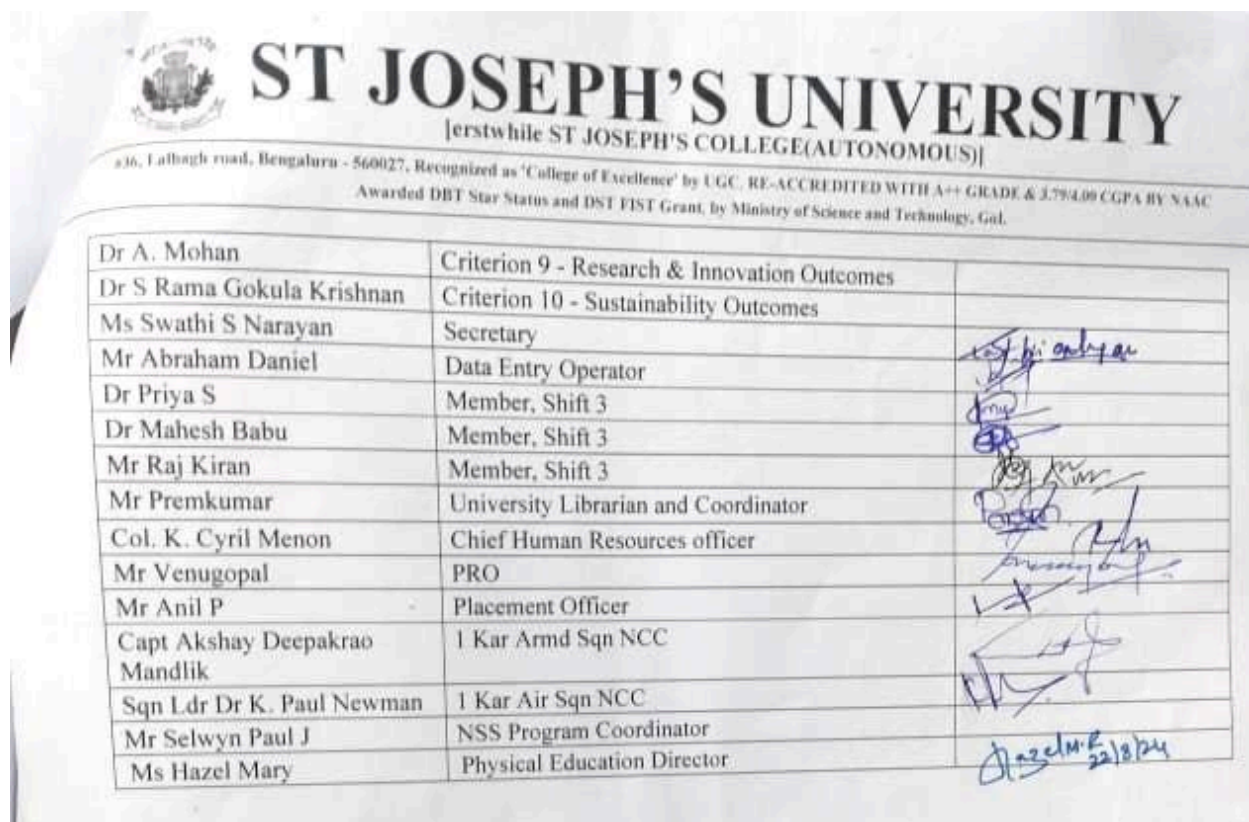 ST JOSEPH'S UNIVERSITY
[erstwhile ST JOSEPH'S COLLEGE(AUTONOMOUS)]
#36, Lalbagh road, Bengaluru - 560027, Recognized as 'College of Excellence' by UGC, RE-ACCREDITED WITH A++ GRADE & 3.79/4.00 CGPA BY NAAC
Awarded DBT Star Status and DST FIST Grant, by Ministry of Science and Technology, GoI.
Dr A. Mohan Criterion 9 - Research & Innovation Outcomes
Dr S Rama Gokula Krishnan Criterion 10 - Sustainability Outcomes
Ms Swathi S Narayan Secretary
Mr Abraham Daniel Data Entry Operator
Dr Priya S Member, Shift 3
Dr Mahesh Babu Member, Shift 3
Mr Raj Kiran Member, Shift 3
Mr Premkumar University Librarian and Coordinator
Col. K. Cyril Menon Chief Human Resources officer
Mr Venugopal PRO
Mr Anil P Placement Officer
Capt Akshay Deepakrao 1 Kar Armd Sqn NCC
Mandlik
Sqn Ldr Dr K. Paul Newman 1 Kar Air Sqn NCC
Mr Selwyn Paul J NSS Program Coordinator
Ms Hazel Mary Physical Education Director Hazel M.R
22/8/24